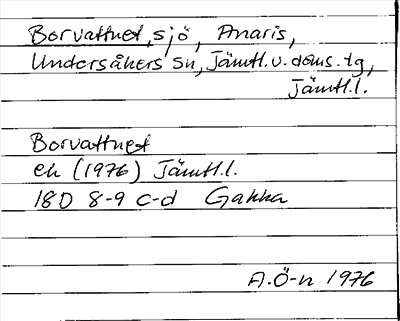 Borvattnet, sjö, Anaris,
Undersåkers sn, Jämtl.v.doms.tg,
Jämtl.l.
Borvattnet
ek (1976) Jämtl.l.
18D 8-9 c-d Gakka
A.Ö-n 1976